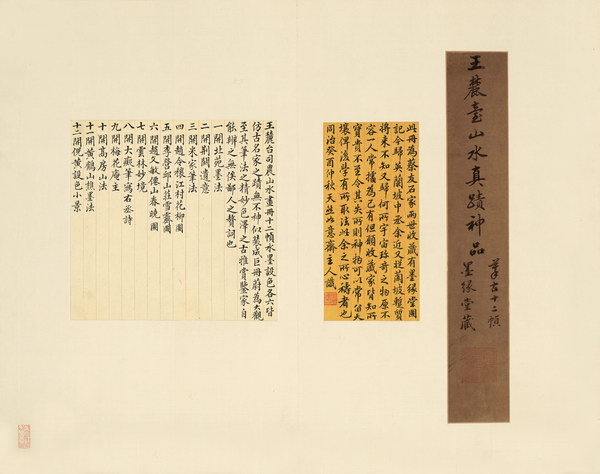 王麓臺山水真蹟神品
墨緣堂藏
此冊為蔡友石家兩世收藏有墨緣堂圖
記今歸英蘭坡中丞余近又從蘭坡暫質
將來不知又歸何所宇宙珍奇之物原不
容一人常擅為己有但願收藏家皆知所
寶貴不至令其失所則神物可以常留天
壤俾後學有所取法此余之所心禱者也
同治癸酉仲秋天並如意齋主人識
王麓台司農山水畫冊十二幀水墨設色各六皆
仿古名家之蹟無不神似裝成巨冊蔚為大觀
至其筆法之精妙色澤之古雅賞鑒家自
能辨之無俟鄙人之贅詞也
一開北苑墨法
二開荆關遺意
三開米家筆法
四開趙令穰江村花柳圖
五開李營邱山莊雪霽圖
六開趙文敏像山春曉圖
七開雲林妙境
八開大癡筆寫右丞詩
九開梅花庵主
十開高房山法
十一開黃鶴山樵墨法
十二開倪黃設色小景